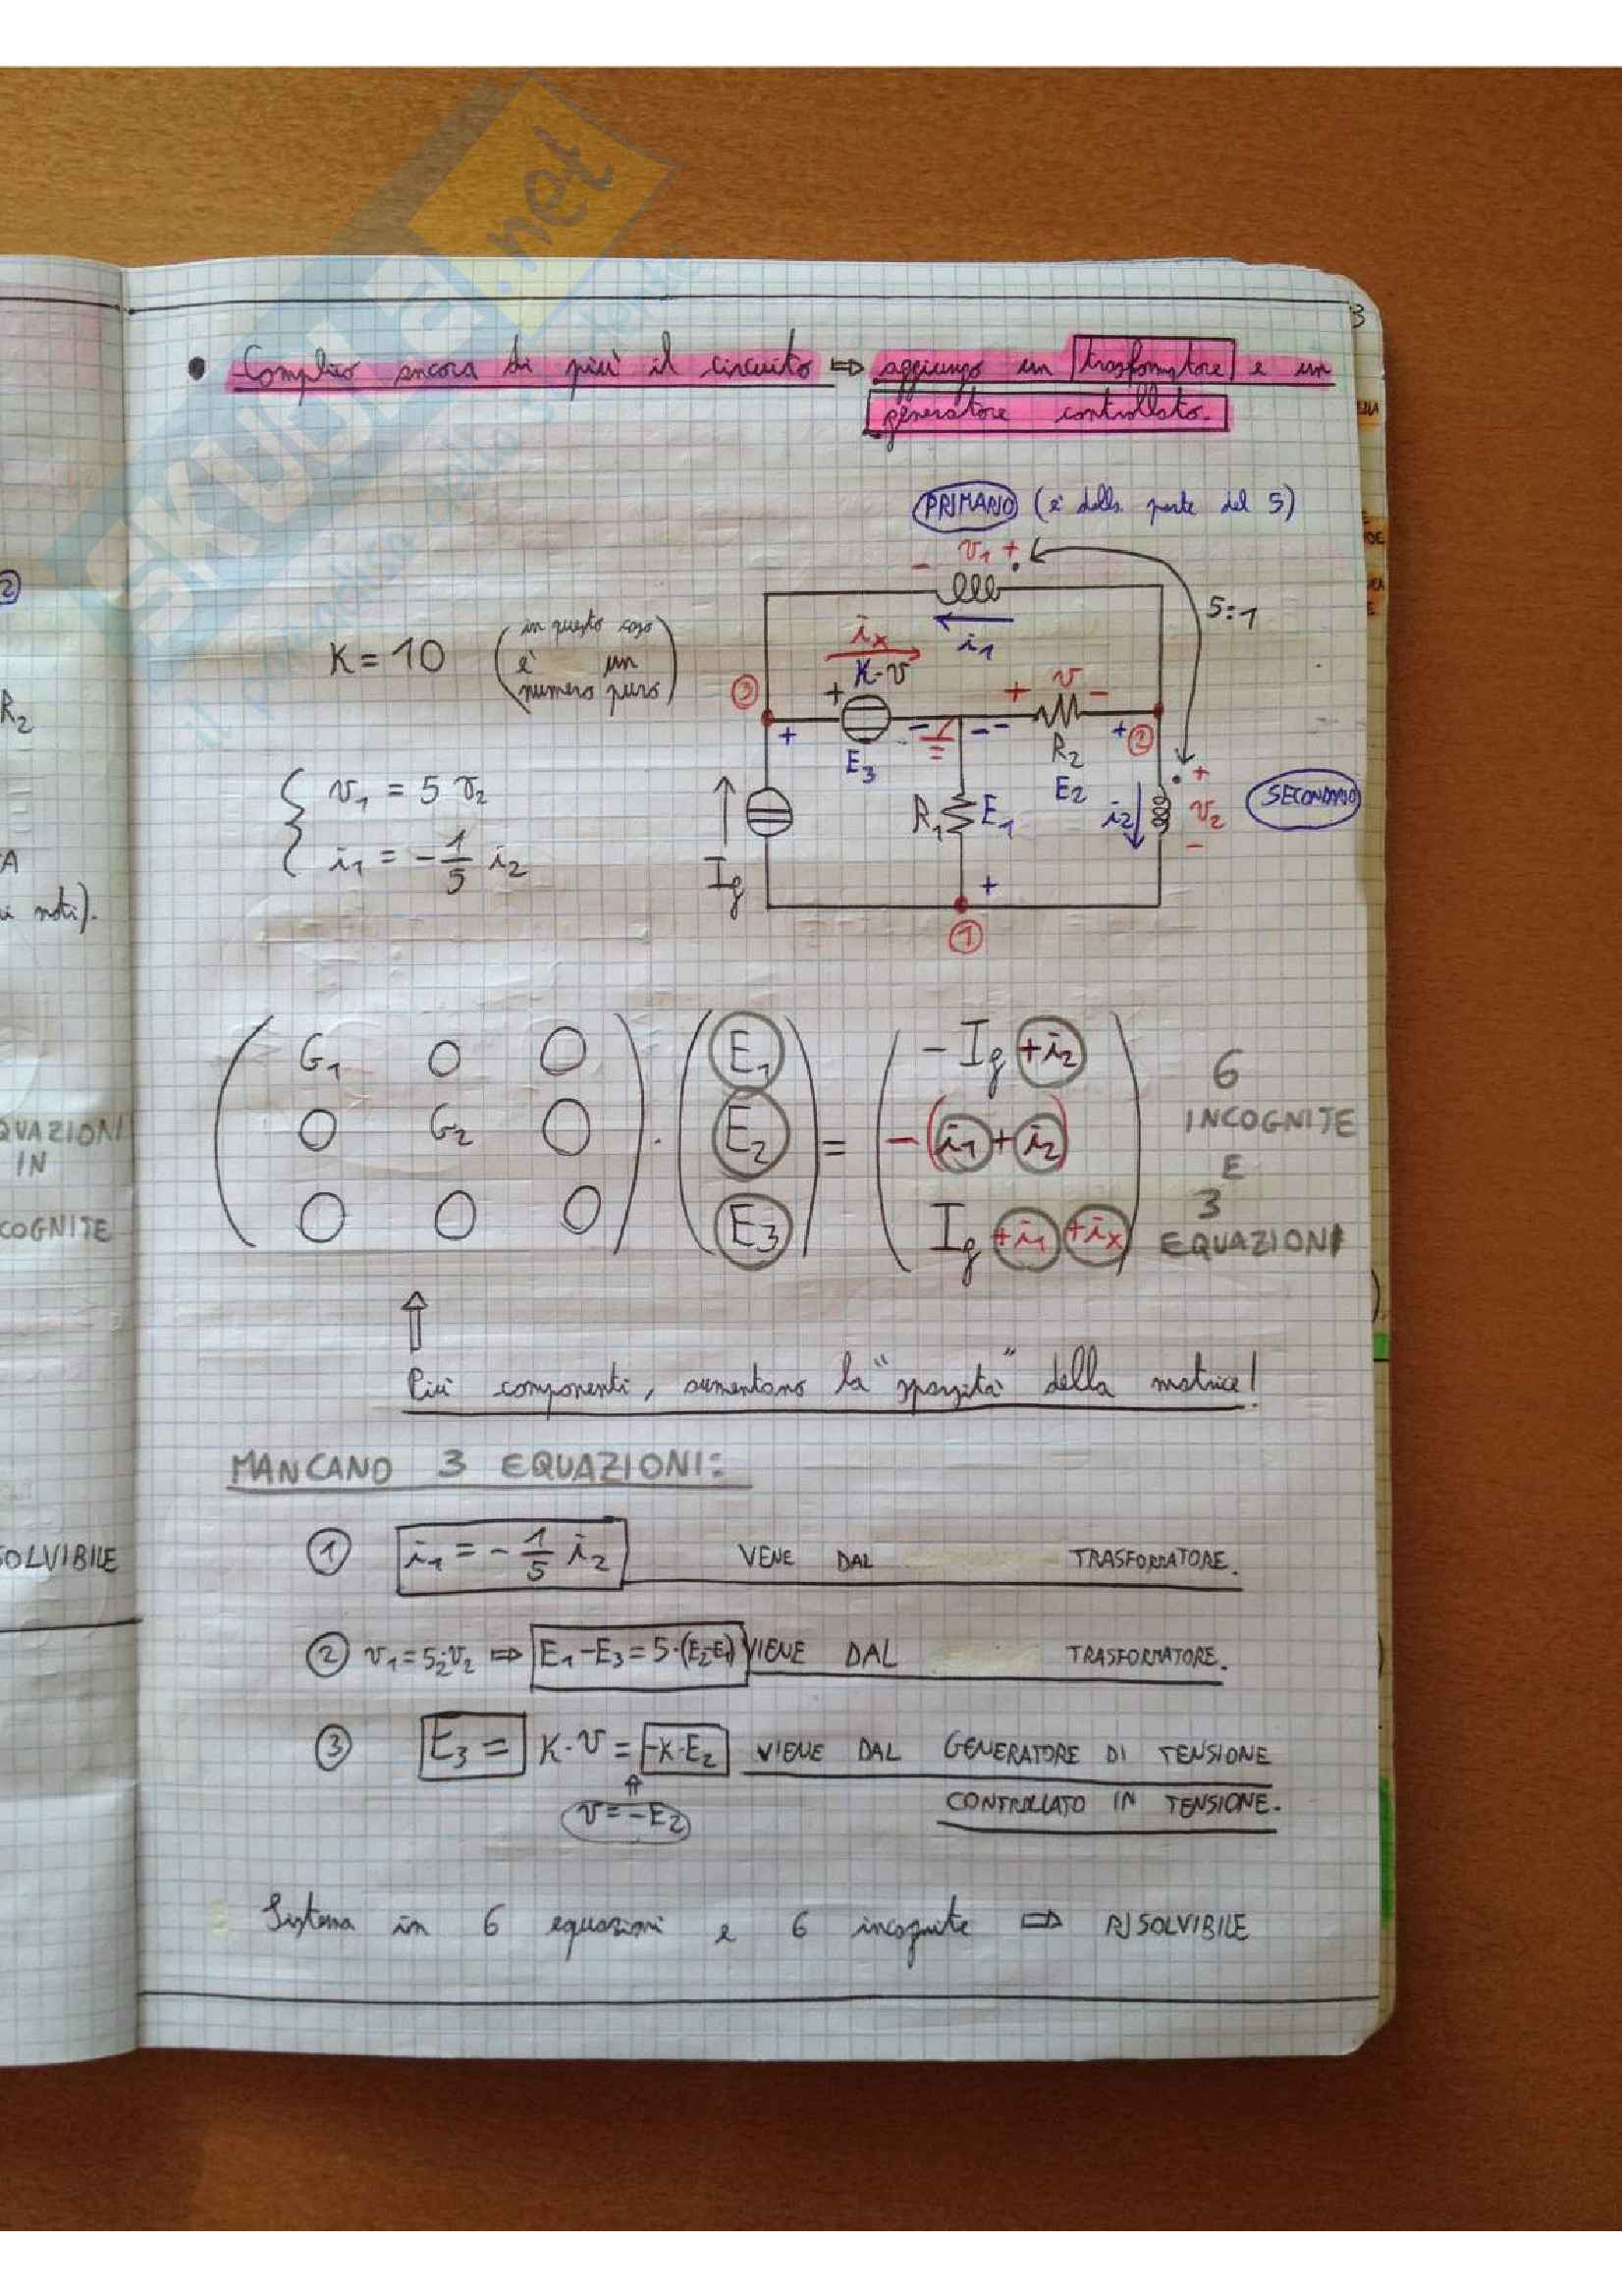 3
• Complico ancora di più il circuito ⇒ aggiungo un trasformatore e un
generatore controllato.
PRIMARIO (è dalla parte del 5)
- v₁ +
5:1
i₁
iₓ
K·v
K = 10 (in questo caso è un numero puro)
③
+
+ v -
+ ②
E₃
R₂
E₂
{ v₁ = 5 v₂
i₁ = - 1/5 i₂
R₁ E₁
i₂
+ v₂ -
SECONDARIO
Ig
+
①
( G₁ 0 0 ) ( E₁ ) ( -Ig +i₂ )
( 0 G₂ 0 ) · ( E₂ ) = ( -(i₁+i₂) )
( 0 0 0 ) ( E₃ ) ( Ig +i₁ +iₓ )
6
INCOGNITE
E
3
EQUAZIONI
⇑
Più componenti, aumentano la "sparsità" della matrice!
MANCANO 3 EQUAZIONI:
① i₁ = - 1/5 i₂ VENE DAL TRASFORMATORE.
② v₁=5·v₂ ⇒ E₁-E₃=5·(E₂-E₁) VIENE DAL TRASFORMATORE.
③ E₃ = K·v = -K·E₂ VIENE DAL GENERATORE DI TENSIONE
CONTROLLATO IN TENSIONE.
v=-E₂
Sistema in 6 equazioni e 6 incognite ⇒ RISOLVIBILE
②
R₂
A
i noti).
QUAZIONI
IN
COGNITE
SOLVIBILE
SKUOLA.net